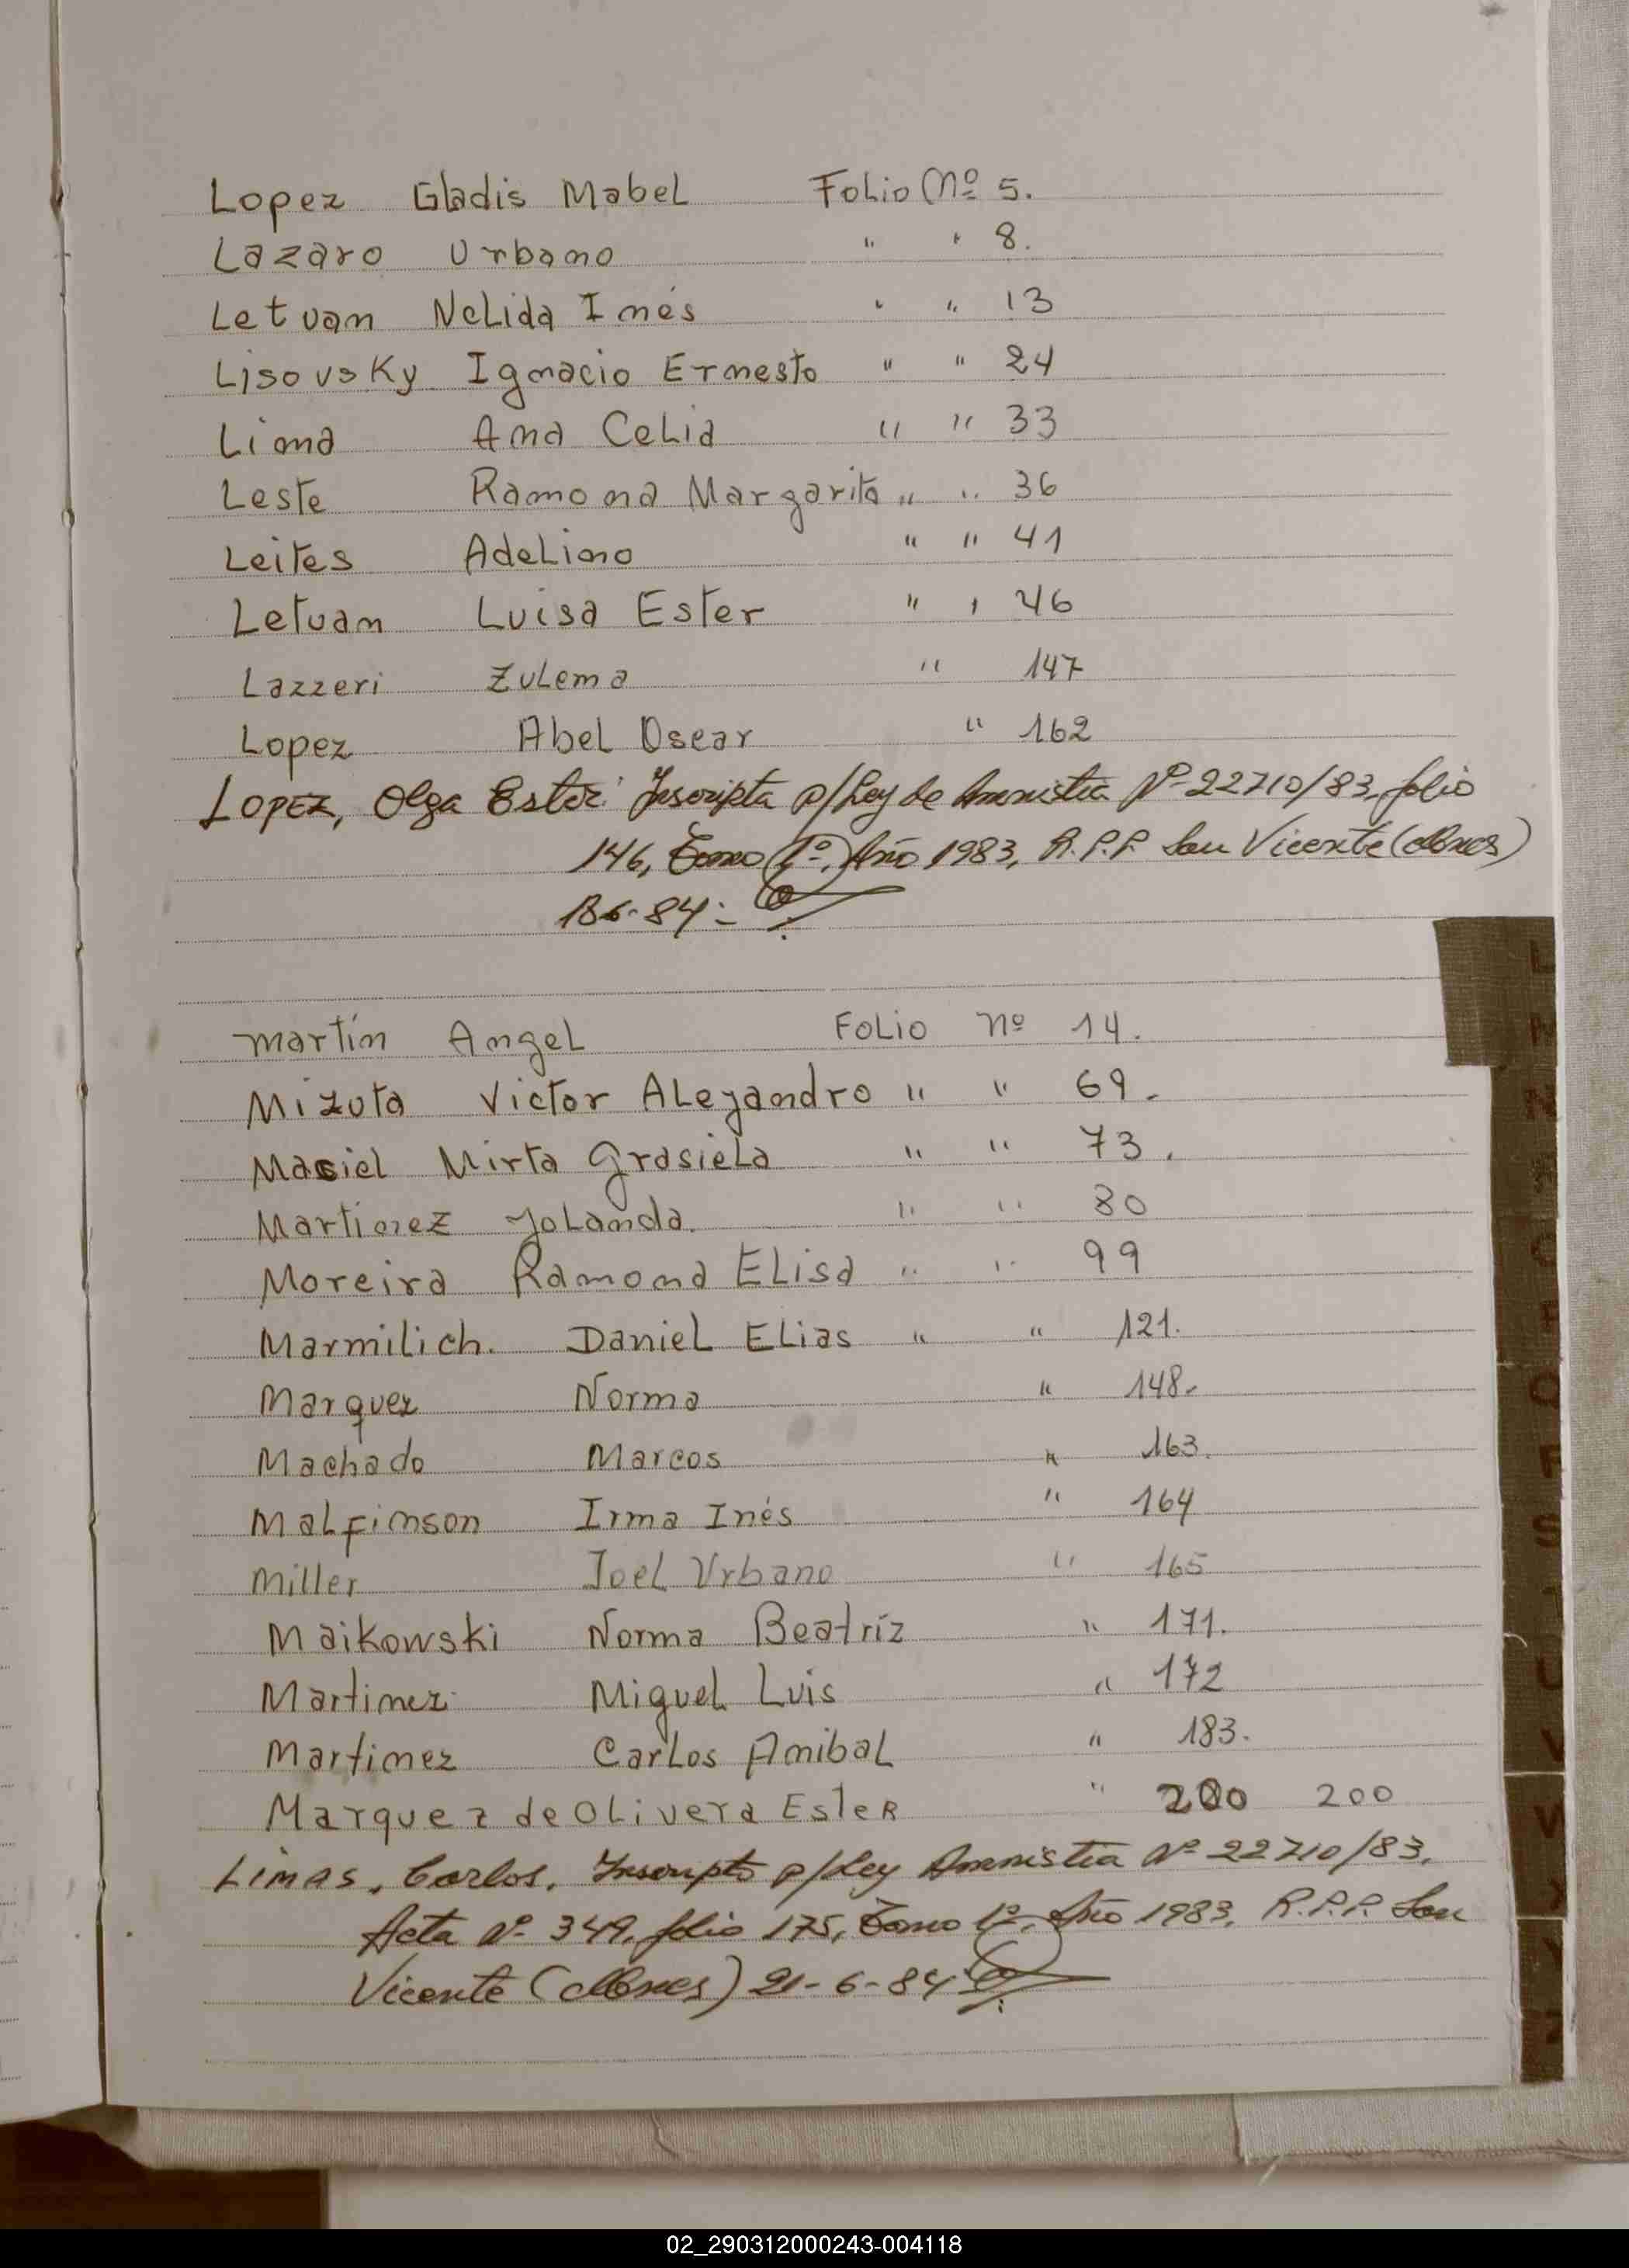 Lopez Gladis Mabel Folio Nº 5.
Lazaro Urbano " " 8.
Letvan Nelida Inés " " 13
Lisovsky Ignacio Ernesto " " 24
Liona Ana Celia " " 33
Leste Ramona Margarita " " 36
Leites Adelino " " 41
Letvan Luisa Ester " " 46
Lazzeri Zulema " 147
Lopez Abel Oscar " 162
LOPEZ, Olga Ester: Inscripta p/Ley de Amnistia Nº 22710/83, folio
146, Tomo 1º, Año 1983, R.P.P. San Vicente (Mnes)
18-6-84:-
Martín Angel Folio Nº 14.
Mizuta Victor Alejandro " " 69.
Maciel Mirta Grasiela " " 73.
Martinez Yolanda. " " 80
Moreira Ramona Elisa " " 99
Marmilich. Daniel Elias " " 121.
Marquez Norma " 148.
Machado Marcos " 163.
Malfinson Irma Inés " 164
Miller Joel Urbano " 165
Maikowski Norma Beatríz " 171.
Martinez Miguel Luis " 172
Martinez Carlos Anibal " 183.
Marquez de Olivera Ester " 200 200
LIMAS, Carlos. Inscripto p/Ley Amnistia Nº 22710/83,
Acta Nº 349, folio 175, Tomo 1º, Año 1983, R.P.P. San
Vicente (Mnes) 21-6-84
L
M
N
Ñ
O
P
Q
R
S
T
U
V
W
X
Y
Z
02_290312000243-004118